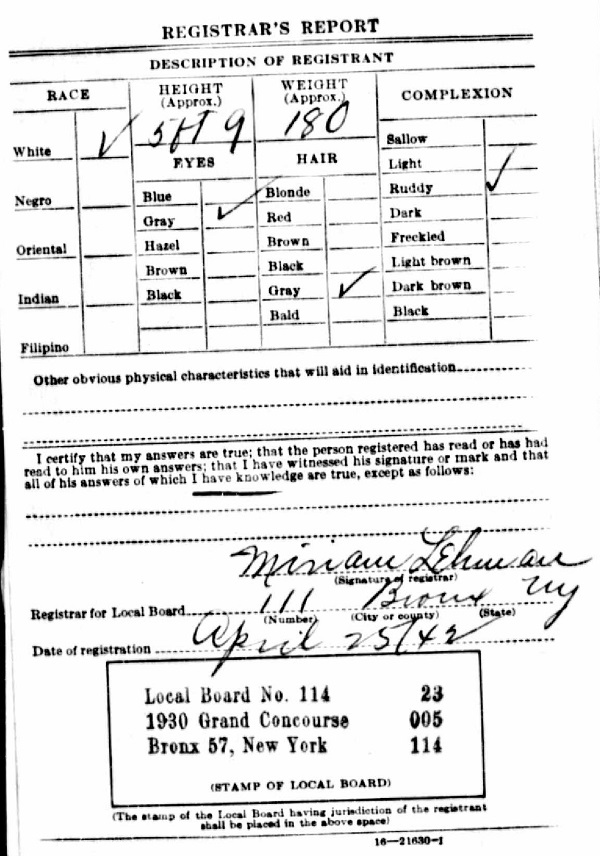 REGISTRAR'S REPORT
DESCRIPTION OF REGISTRANT
RACE
HEIGHT
(Approx.)
WEIGHT
(Approx.)
COMPLEXION
White ✓
5 ft 9
180
Sallow
EYES
HAIR
Light
Negro
Blue
Blonde
Ruddy ✓
Gray ✓
Red
Dark
Oriental
Hazel
Brown
Freckled
Brown
Black
Light brown
Indian
Black
Gray ✓
Dark brown
Bald
Black
Filipino
Other obvious physical characteristics that will aid in identification
I certify that my answers are true; that the person registered has read or has had
read to him his own answers; that I have witnessed his signature or mark and that
all of his answers of which I have knowledge are true, except as follows:
Miriam Lehman
(Signature of registrar)
Registrar for Local Board 111 Bronx NY
(Number) (City or county) (State)
Date of registration April 25/42
Local Board No. 114 23
1930 Grand Concourse 005
Bronx 57, New York 114
(STAMP OF LOCAL BOARD)
(The stamp of the Local Board having jurisdiction of the registrant
shall be placed in the above space)
16—21630-1